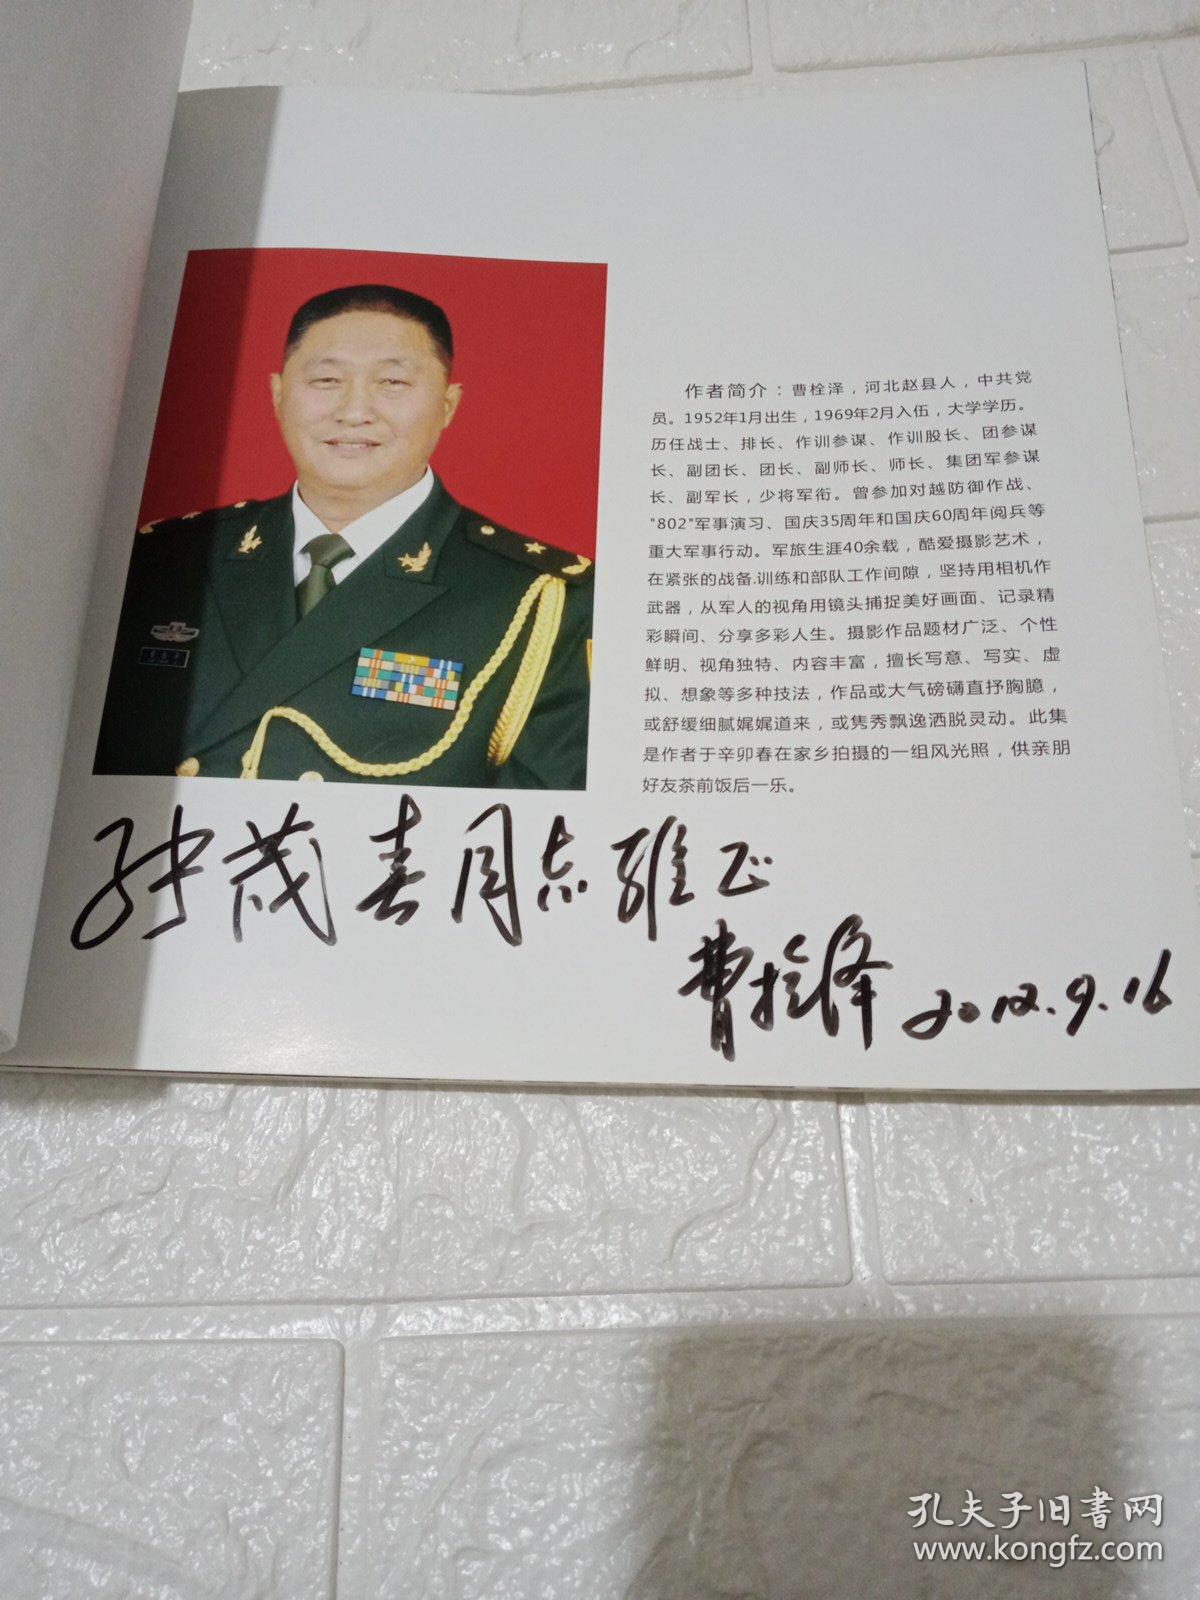 作者简介：曹栓泽，河北赵县人，中共党
员。1952年1月出生，1969年2月入伍，大学学历。
历任战士、排长、作训参谋、作训股长、团参谋
长、副团长、团长、副师长、师长、集团军参谋
长、副军长，少将军衔。曾参加对越防御作战、
"802"军事演习、国庆35周年和国庆60周年阅兵等
重大军事行动。军旅生涯40余载，酷爱摄影艺术，
在紧张的战备.训练和部队工作间隙，坚持用相机作
武器，从军人的视角用镜头捕捉美好画面、记录精
彩瞬间、分享多彩人生。摄影作品题材广泛、个性
鲜明、视角独特、内容丰富，擅长写意、写实、虚
拟、想象等多种技法，作品或大气磅礴直抒胸臆，
或舒缓细腻娓娓道来，或隽秀飘逸洒脱灵动。此集
是作者于辛卯春在家乡拍摄的一组风光照，供亲朋
好友茶前饭后一乐。
张茂春同志雅正
曹栓泽 2012.9.16
孔夫子旧书网
www.kongfz.com